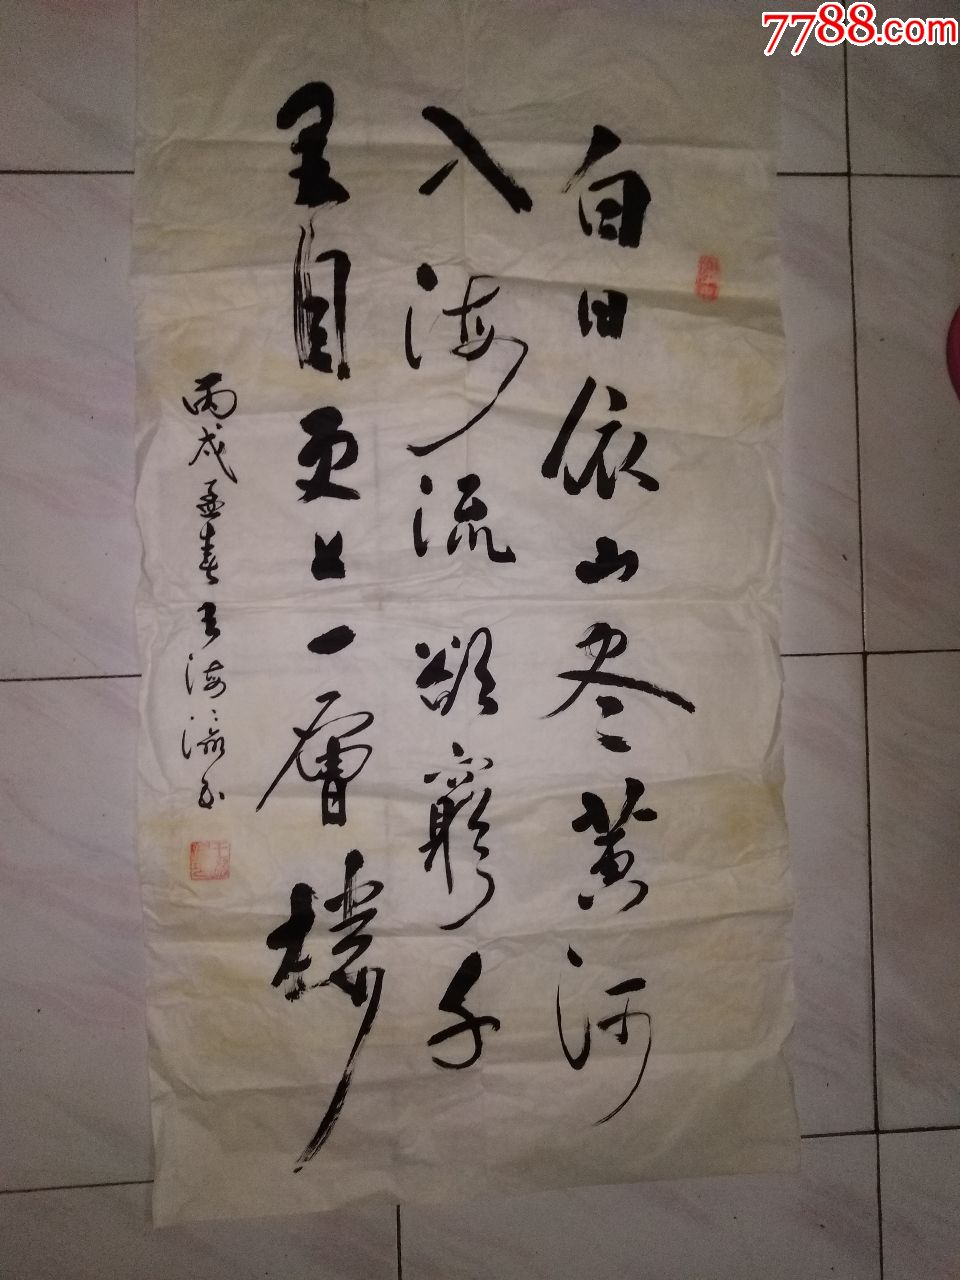 7788.com
白日依山尽黄河
入海流欲窮千
里目更上一層樓
丙戌孟春王海流书